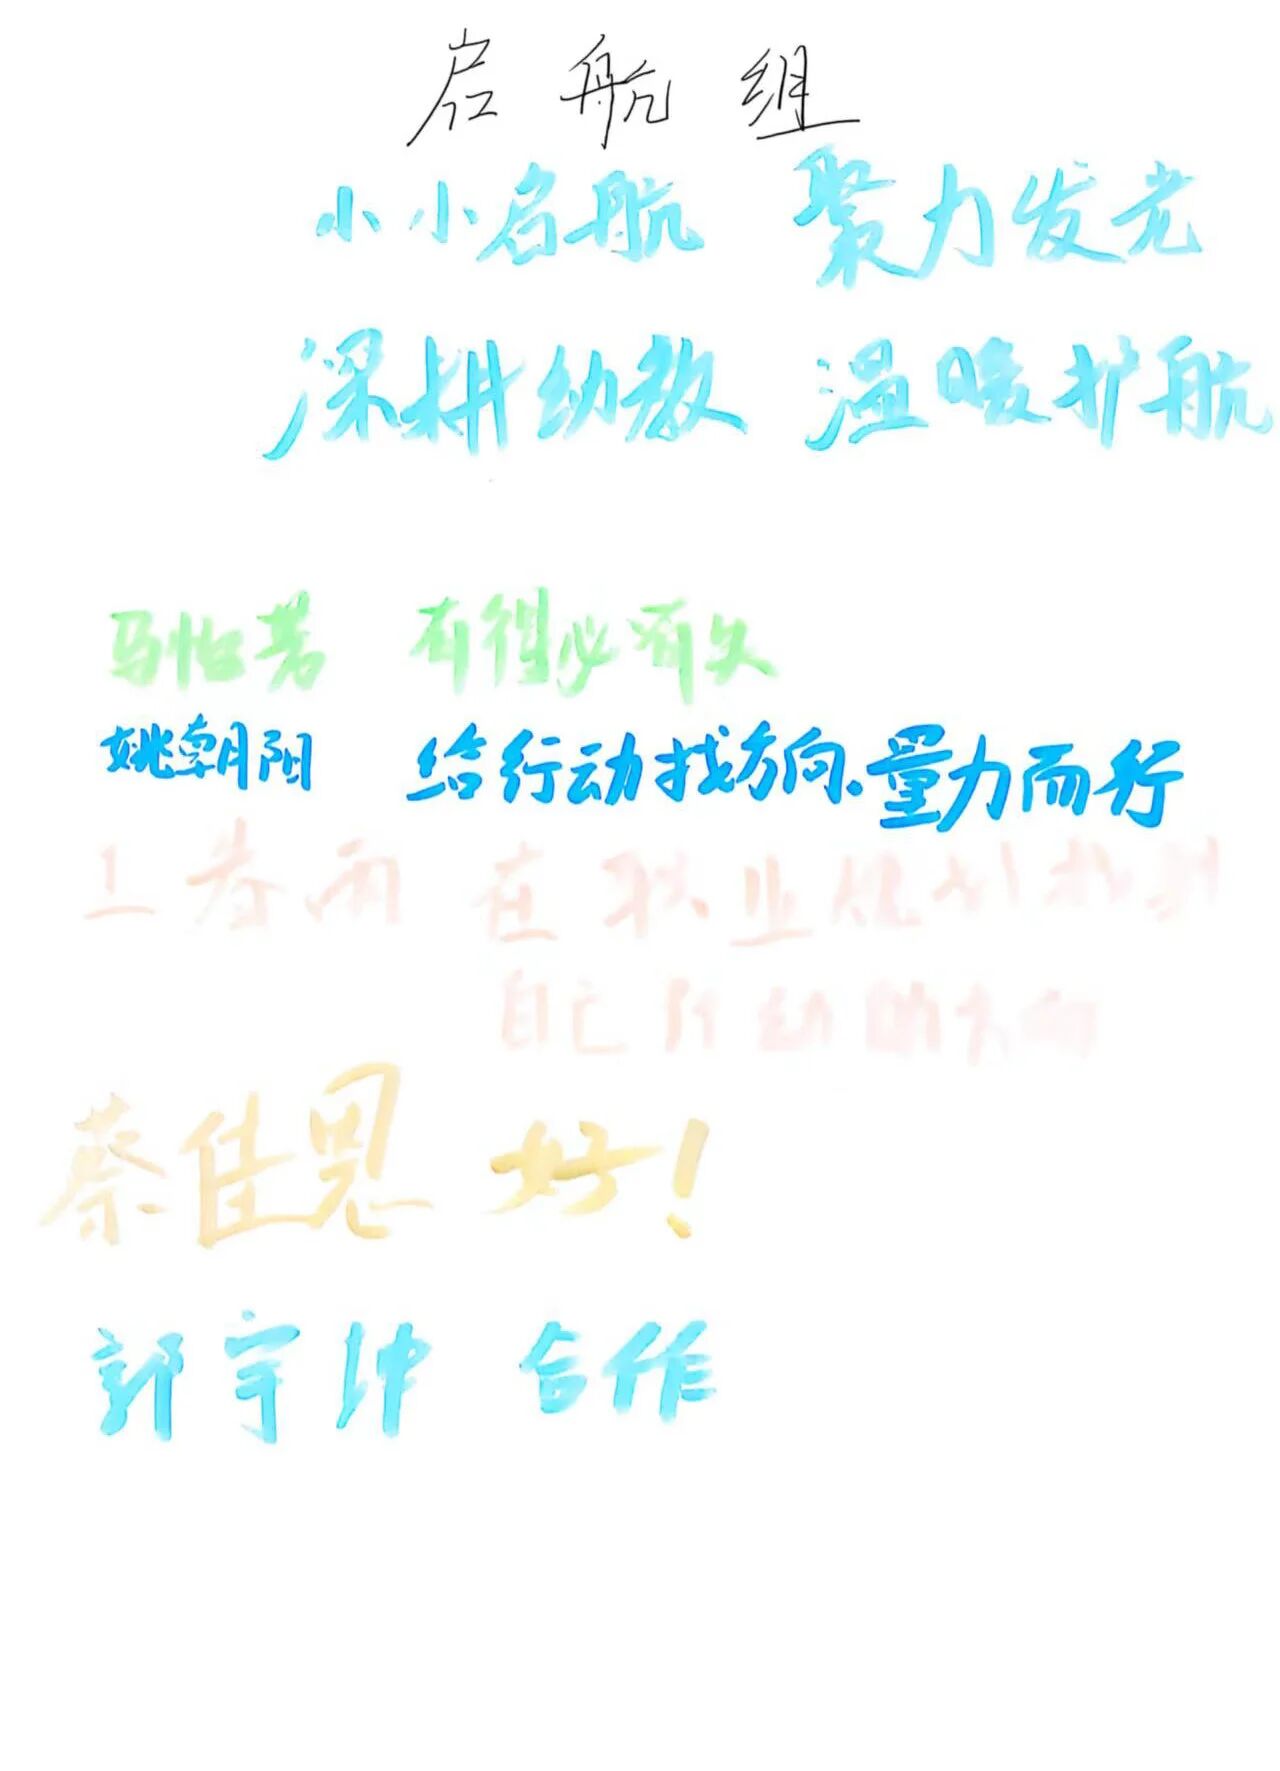 启航组
小小启航 聚力发光
深耕幼教 温暖护航
马怡芳 有得必有失
姚朝阳 给行动找方向.量力而行
春雨 在职业规划找到
自己行动的方向
蔡佳恩 好!
郭宇坤 合作